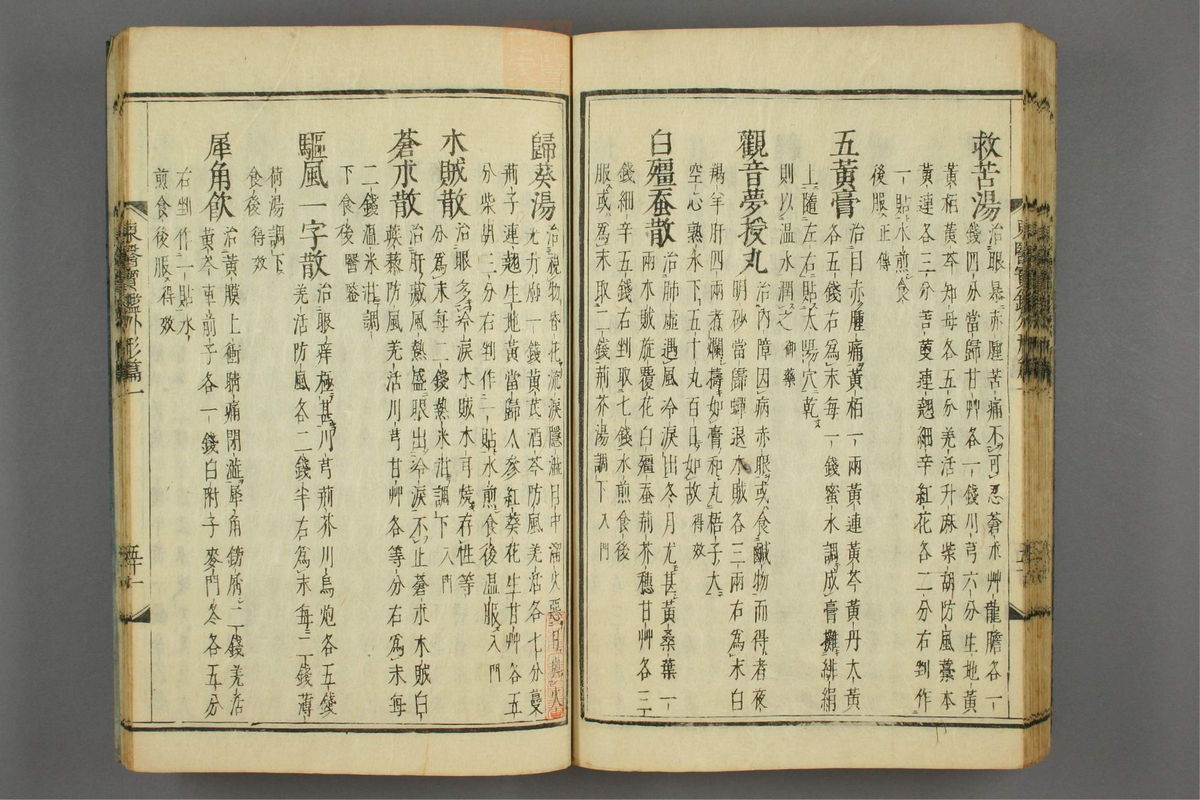 救苦湯 治眼暴赤腫苦痛不可忍蒼朮艸龍膽各一
錢四分當歸甘艸各一錢川芎六分生地黃
黃栢黃芩知母各五分羌活升麻柴胡防風藁本
黃連各三分菩蔞連翹細辛紅花各二分右剉作
一貼水煎食
後服正傳
五黃膏 治目赤腫痛黃栢一兩黃連黃芩黃丹大黃
各五錢右爲末每一錢蜜水調成膏攤緋絹
上隨左右貼太陽穴乾
則以溫水潤之御藥
觀音夢授丸 治內障因病赤眼或食鹹物而得者夜
明砂當歸蟬退木賊各三兩右爲末白
羯羊肝四兩煮爛擣如膏和丸梧子大
空心熟水下五十丸百日如故得效
白殭蚕散 治肺虛遇風冷淚出冬月尤甚黃桑葉一
兩木賊旋覆花白殭蚕荊芥穗甘艸各三
錢細辛五錢右剉取七錢水煎食後
服或爲末取二錢荊芥湯調下入門
歸葵湯 治視物昏花流淚隱澁目中溜火惡日與火
荊子連翹生地黃當歸人參紅葵花生甘艸各五
分柴胡二分右剉作一貼水煎食後溫服入門
木賊散 治眼多冷淚木賊水可燒存性等
分爲末每二錢熱米泔調下入門
蒼朮散 治肝藏風熱盛眼出冷淚不止蒼朮木賊白
蒺藜防風羌活川芎甘艸各等分右爲末每
二錢溫米泔調
下食後醫鑒
驅風一字散 治眼痒極甚川芎荊芥川烏炮各五錢
羌活防風各二錢半右爲末每二錢薄
荷湯調下
食後得效
犀角飮 治黃膜上衝睛痛閉澁犀角鎊屑二錢羌活
黃芩車前子各一錢白附子麥門冬各五分
右剉作一貼水
煎食後服得效
東醫寶鑑外形篇一
五十一